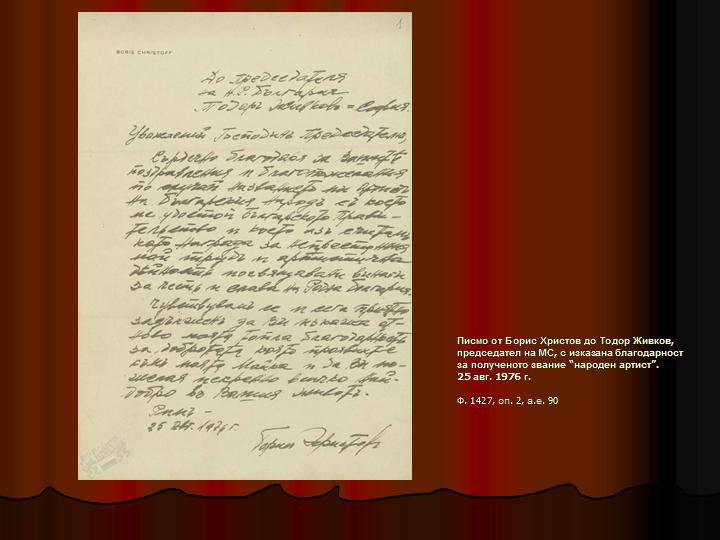 1
BORIS CHRISTOFF
До председателя
на Н.Р. България
Тодоръ Живковъ = София.
Уважаемий Господинъ Председателю,
Сърдечно благодаря за Вашите
поздравления и благопожелания
по случай названието ми Артистъ
на Българския народъ съ което
ме удостои Българското Прави-
телство и което азъ считамъ
като награда за непрестанния
мой трудъ и артистична
дейность посвещавани винаги
за честь и слава на Родна България.
Чувствувамъ се и сега приятно
задълженъ да Ви изкажа от-
ново моята топла благодарность
за добротата която проявихте
къмъ моята Майка и да Ви по-
желая искренно всичко най-
добро въ Вашия животъ.
Римъ -
25 Авг. 1976 г.
Борис Христовъ
Писмо от Борис Христов до Тодор Живков,
председател на МС, с изказана благодарност
за полученото звание “народен артист”.
25 авг. 1976 г.
Ф. 1427, оп. 2, а.е. 90